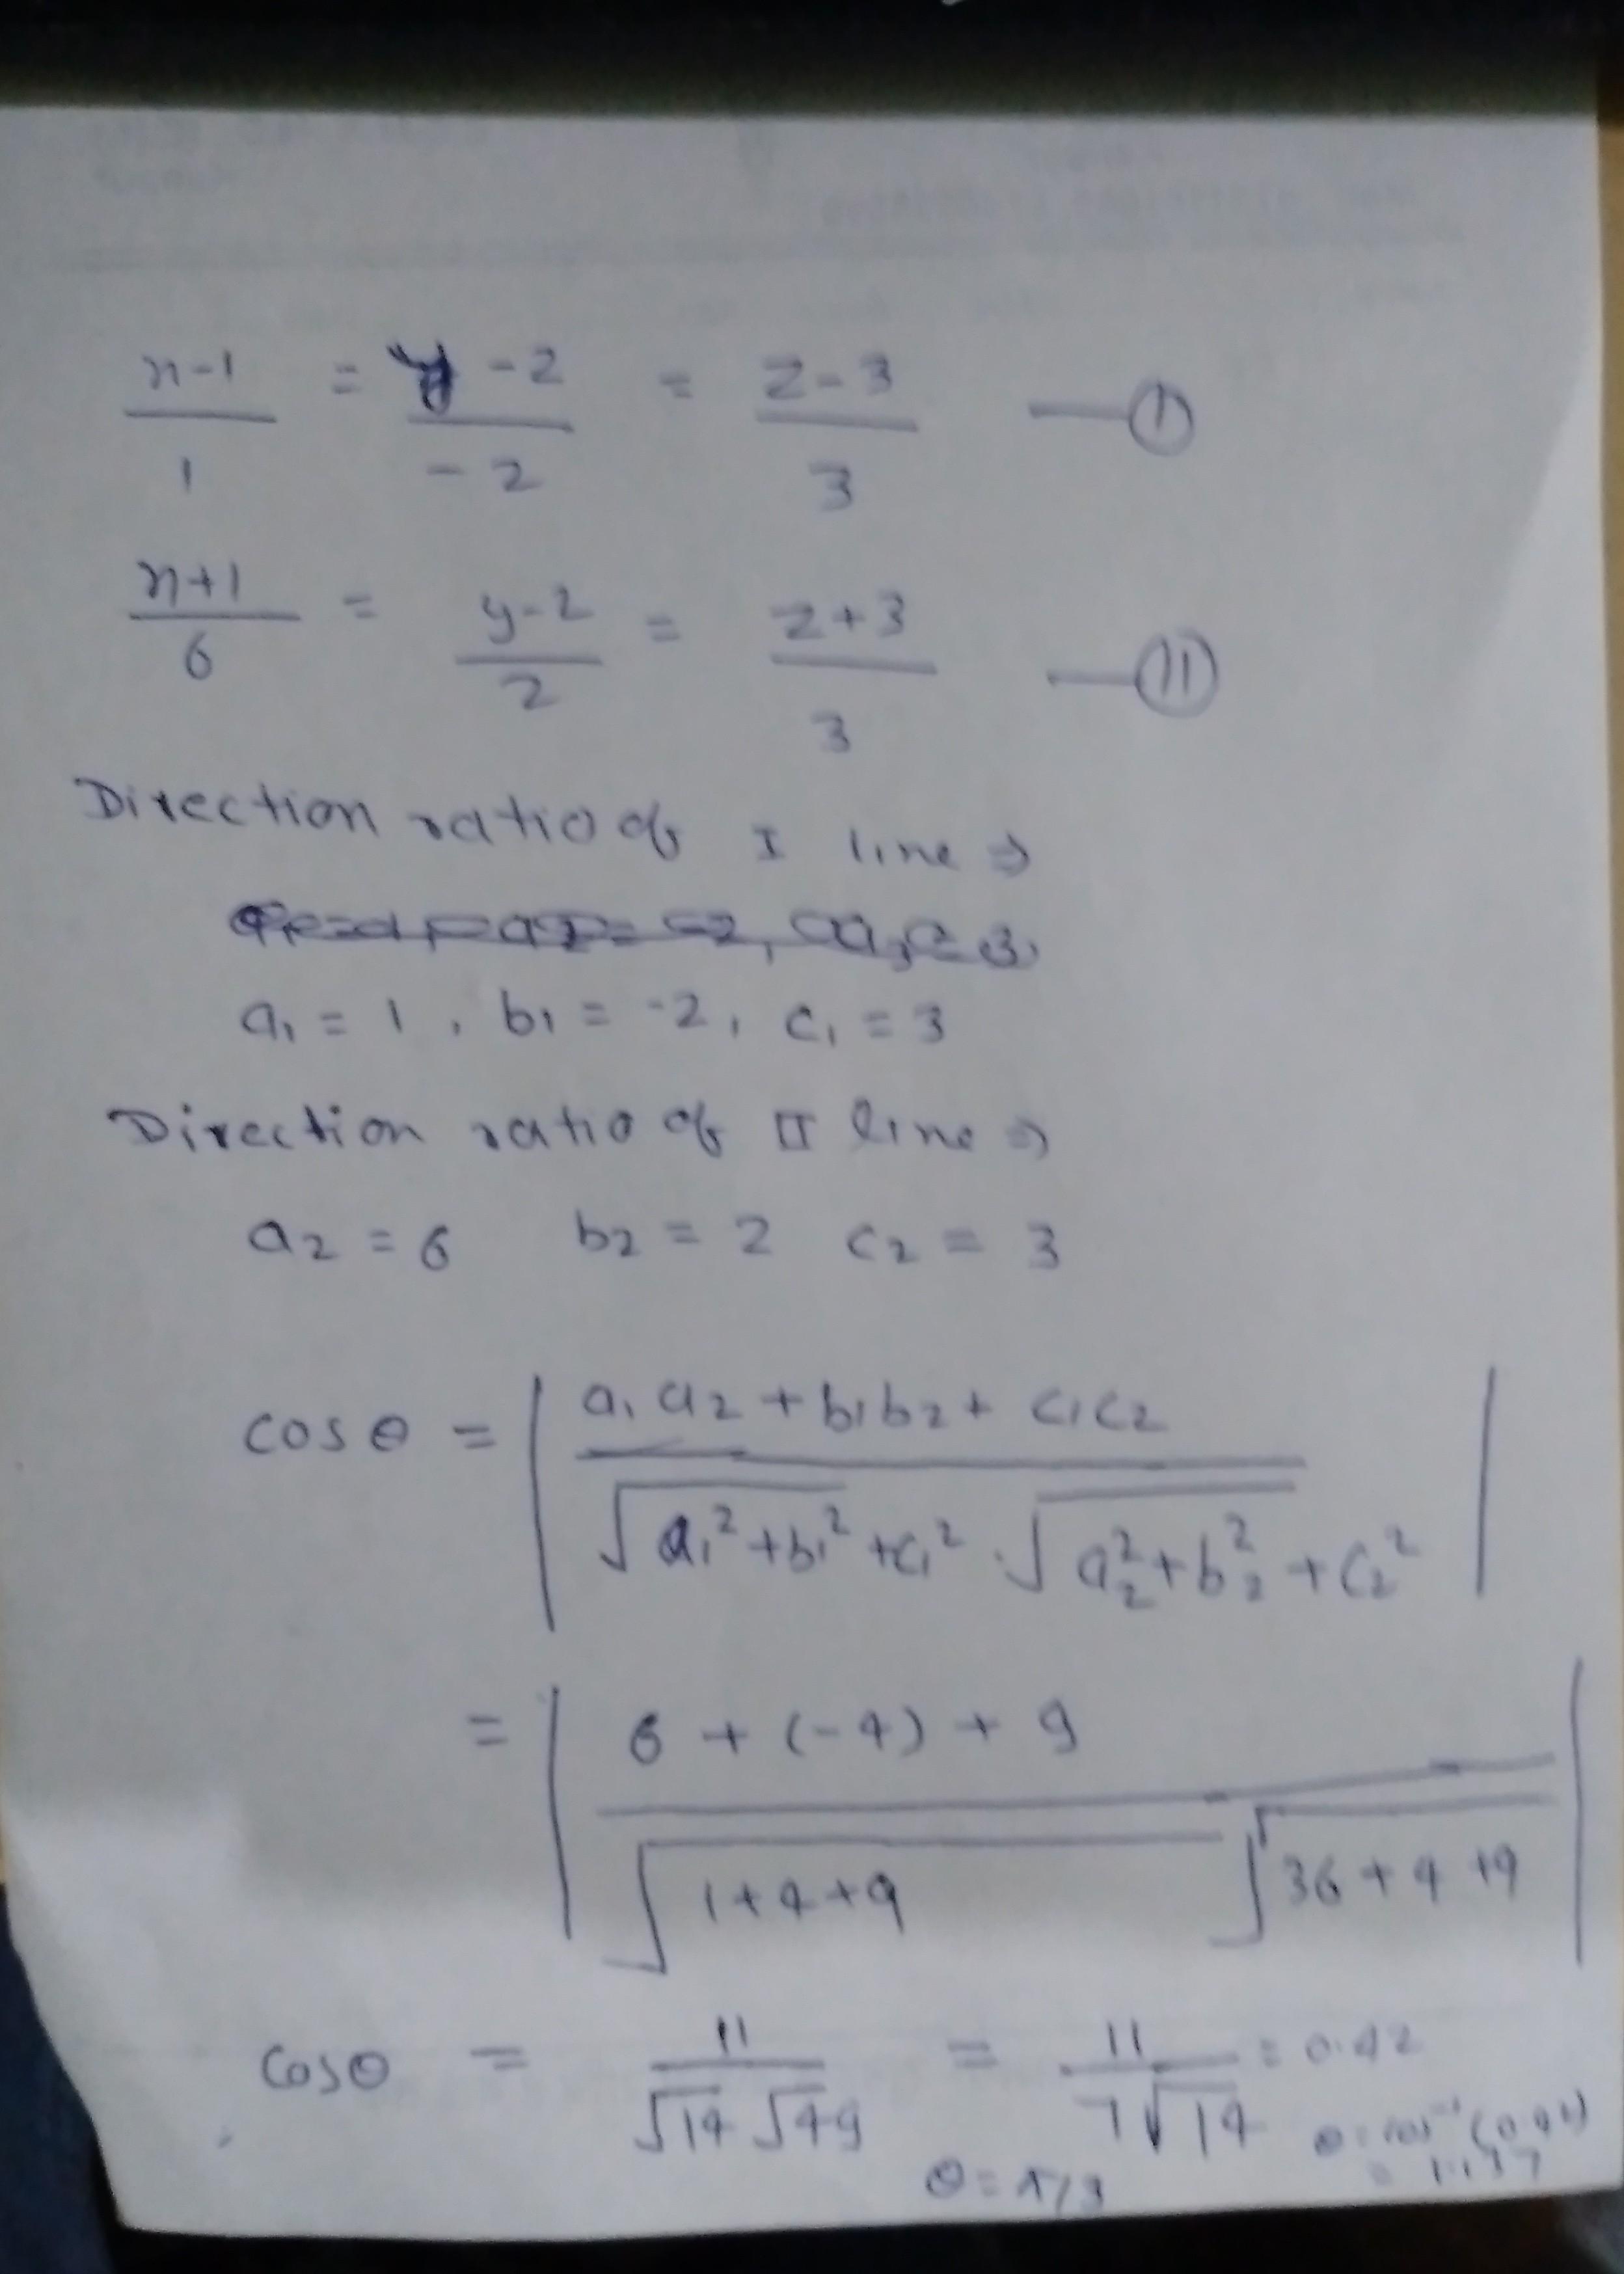 x-1/1 = y-2/-2 = z-3/3 —(I)
x+1/6 = y-2/2 = z+3/3 —(II)
Direction ratio of I line ⇒
a₁ = 1, b₁ = -2, c₁ = 3
Direction ratio of II line ⇒
a₂ = 6 b₂ = 2 c₂ = 3
cos θ = | a₁a₂ + b₁b₂ + c₁c₂ / √a₁²+b₁²+c₁² · √a₂²+b₂²+c₂² |
= | 6 + (-4) + 9 / √1+4+9 √36+4+9 |
cosθ = 11/√14 √49 = 11/7√14 = 0.42
θ = cos⁻¹(0.42)
= 1.137